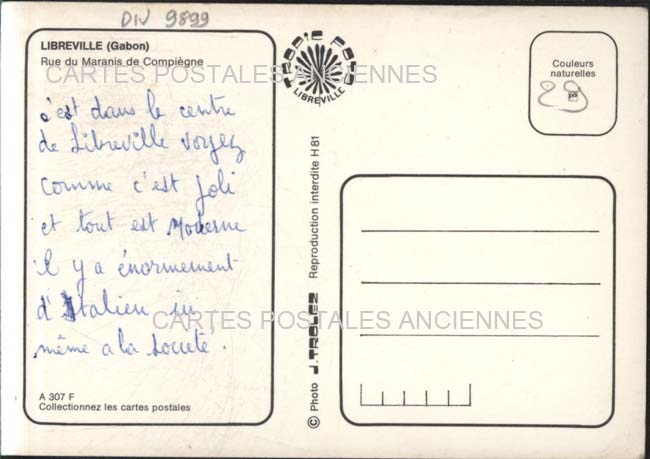 DIV 9899
LIBREVILLE (Gabon)
Rue du Maranis de Compiègne
CARTES POSTALES ANCIENNES
c'est dans le centre
de Libreville voyez
comme c'est joli
et tout est Moderne
il y a énormement
d'Italien ici
même a la Société.
CARTES POSTALES ANCIENNES
A 307 F
Collectionnez les cartes postales
TROPIC FOTO
LIBREVILLE
© Photo J. TROLEZ Reproduction interdite H 81
Couleurs
naturelles